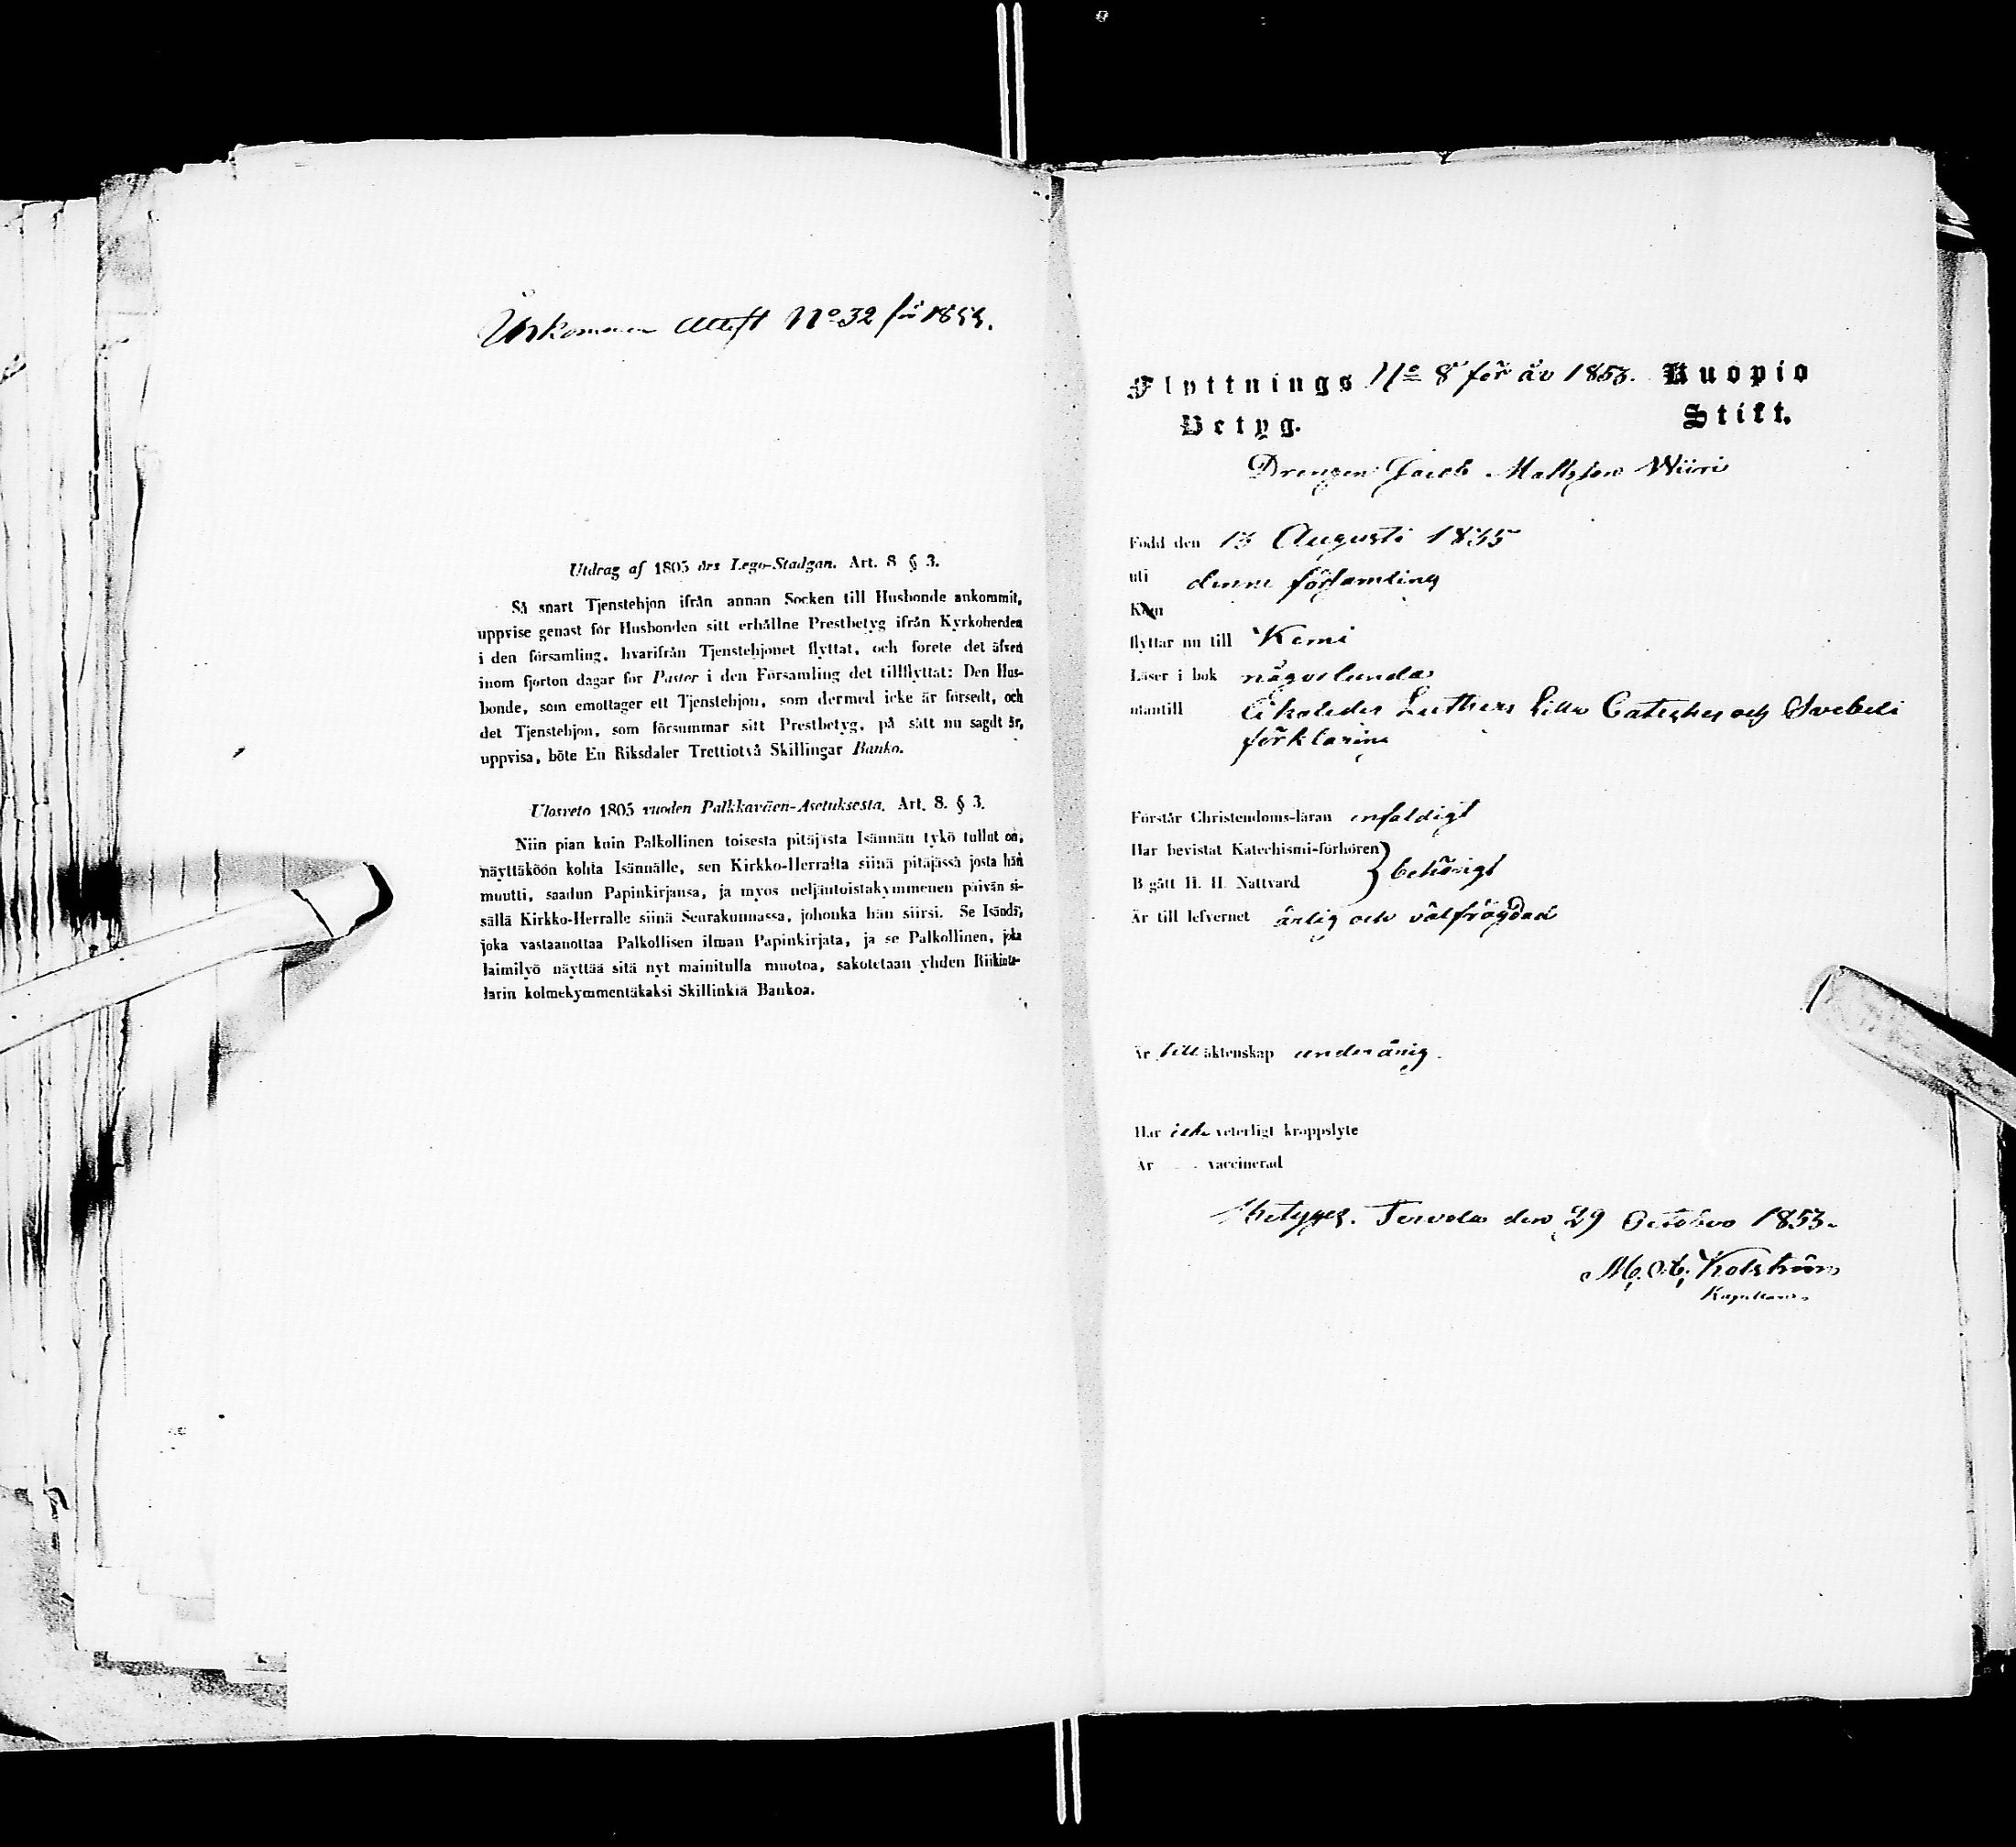 Ankommen Attest No 32 för 1853.
Utdrag af 1805 års Lego-Stadgan. Art. 8 § 3.
Så snart Tjenstehjon ifrån annan Socken till Husbonde ankommit,
uppvise genast för Husbonden sitt erhållne Prestbetyg ifrån Kyrkoherden
i den församling, hvarifrån Tjenstehjonet flyttat, och förete det äfven
inom fjorton dagar för Pastor i den Församling det tillflyttat: Den Hus-
bonde, som emottager ett Tjenstehjon, som dermed icke är försedt, och
det Tjenstehjon, som försummar sitt Prestbetyg, på sätt nu sagdt är,
uppvisa, böte En Riksdaler Trettiotvå Skillingar Banko.
Ulosveto 1805 vuoden Palkkaväen-Asetuksesta. Art. 8. § 3.
Niin pian kuin Palkollinen toisesta pitäjästa Isännän tykö tullut on,
näyttäköön kohta Isännälle, sen Kirkko-Herralta siinä pitäjässä josta hän
muutti, saadun Papinkirjansa, ja myös neljäntoistakymmenen päivän si-
sällä Kirkko-Herralle siinä Seurakunnassa, johonka hän siirsi. Se Isändä,
joka vastaanottaa Palkollisen ilman Papinkirjata, ja se Palkollinen, joka
laimilyö näyttää sitä nyt mainitulla muotoa, sakotetaan yhden Riikinta-
larin kolmekymmentäkaksi Skillinkiä Bankoa.
Flyttnings No 8 för år 1853. Kuopio
Betyg. Stift.
Drengen Jacob Mattsson Wiiri
Född den 13 Augusti 1835
uti denne församling
Kom
flyttar nu till Kemi
Läser i bok någorlunda
utantill Luthers lilla Cateches och Svebeli
förklaring
Förstår Christendoms-läran enfaldigt
Har bevistat Katechismi-förhören
Begått H. H. Nattvard } behörigt
Är till lefvernet ärlig och välfrägdad
Är till äktenskap underårig.
Har icke veterligt kroppslyte
Är vaccinerad
Attesteras. Tervola den 29 October 1853.
Kapellan